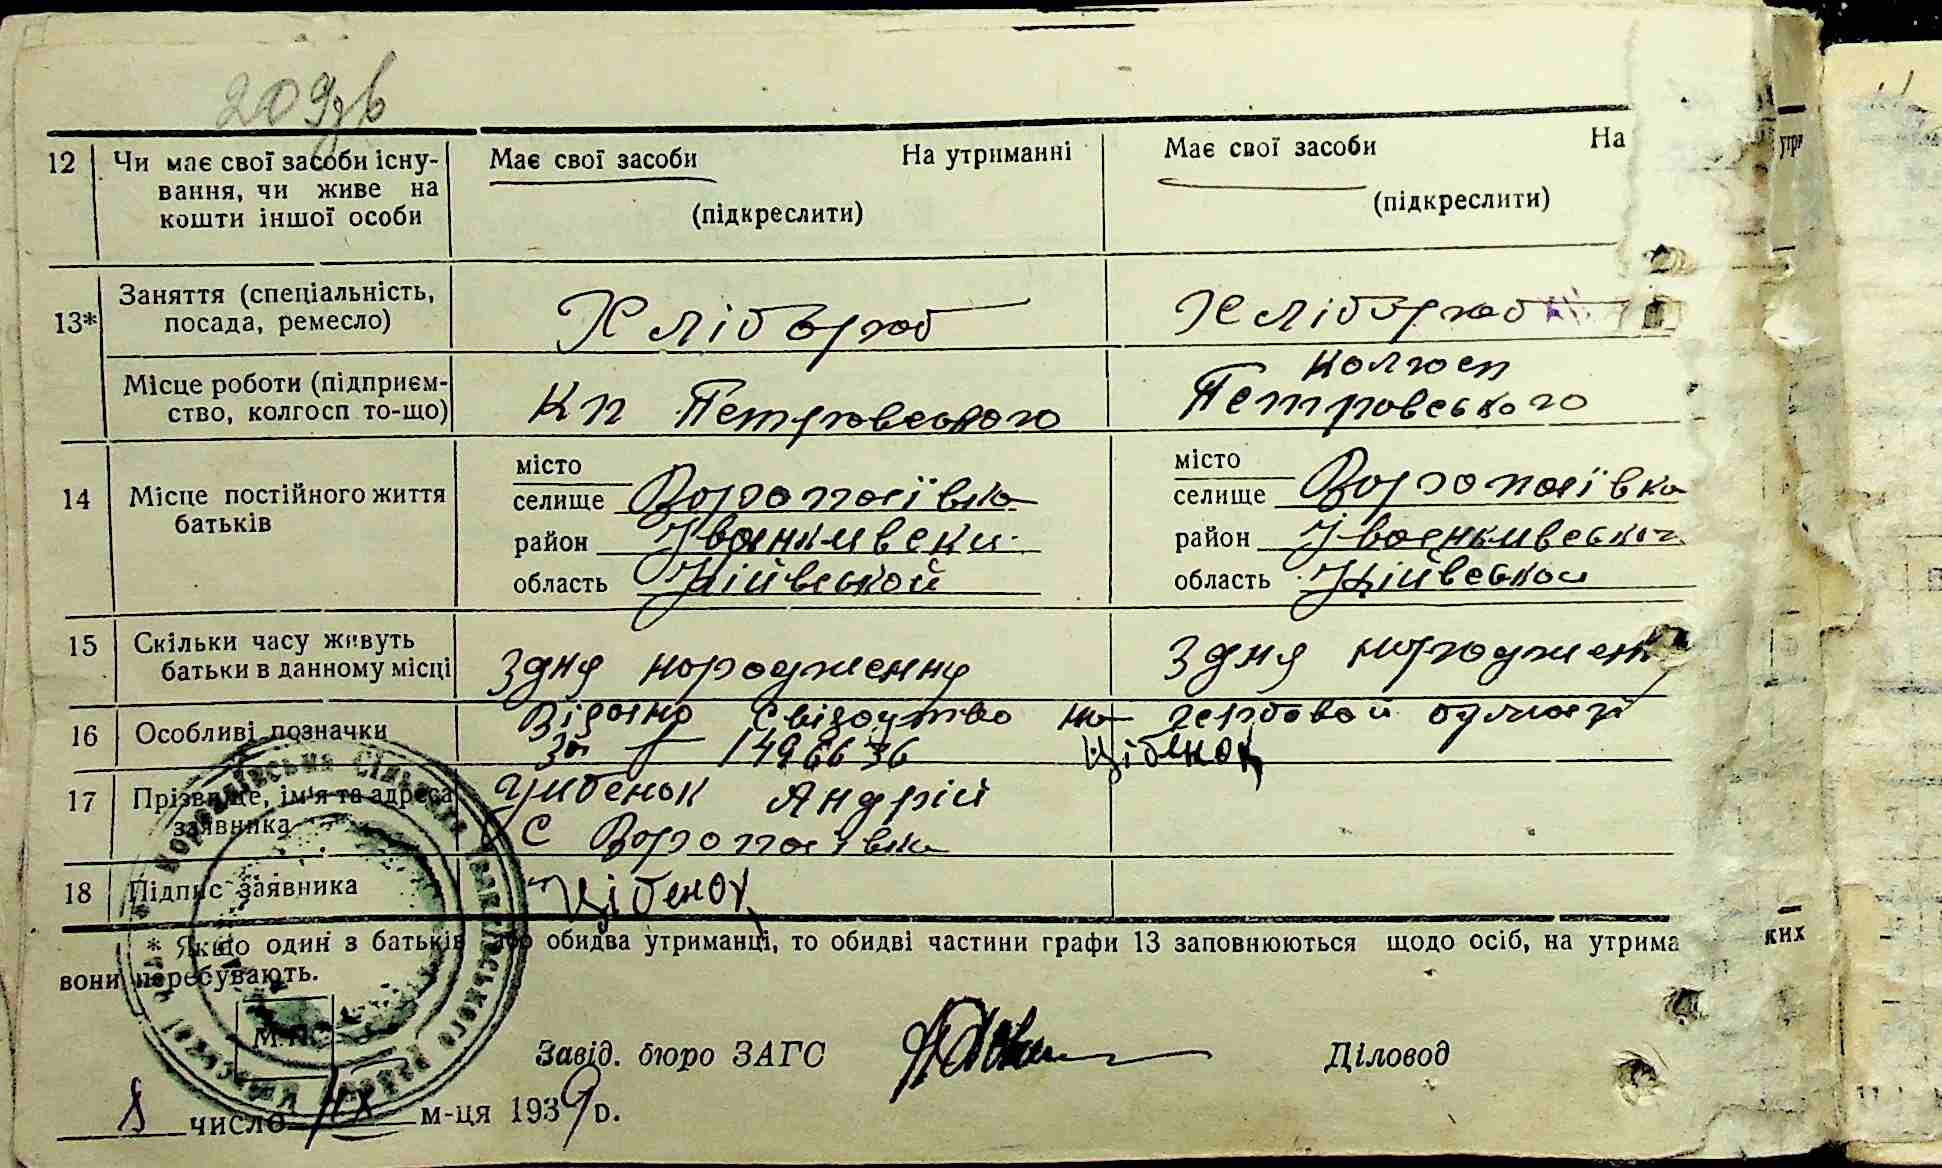 209зв
12 Чи має свої засоби існу-
вання, чи живе на
кошти іншої особи
Має свої засоби На утриманні
(підкреслити)
Має свої засоби На
(підкреслити)
13* Заняття (спеціальність,
посада, ремесло)
Хлібороб
Хлібороб
Місце роботи (підприєм-
ство, колгосп то-що)
Кп Петровського
Колгосп
Петровського
14 Місце постійного життя
батьків
місто
селище Воропаївка
район Іванкивськи
область Київськой
місто
селище Воропаївка
район Іванкивської
область Київской
15 Скільки часу живуть
батьки в данному місці
Здня народження
Здня народжен
16 Особливі позначки
Відано Свідоцтво на гербовой бумазі
За № 1496636 Цібенок
17 Прізвище, ім'я та адреса
заявника
Цибенок Андрій
С Воропаївка
18 Підпис заявника
Цібенок
* Якщо один з батьків або обидва утриманці, то обидві частини графи 13 заповнюються щодо осіб, на утрима
ких
вони перебувають.
М.П.
Завід. бюро ЗАГС
Діловод
8 число IX м-ця 1939 р.